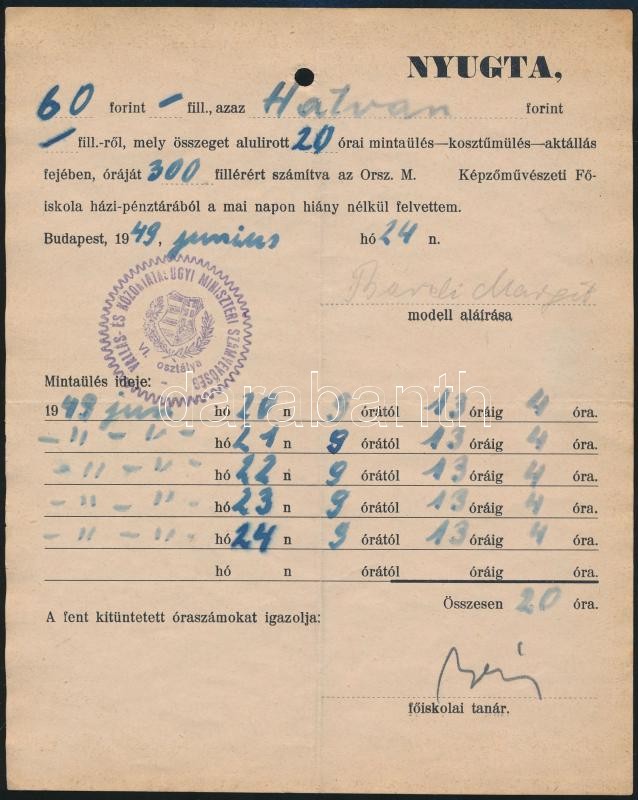 NYUGTA,
60 forint – fill., azaz Hatvan forint
– fill.-ről, mely összeget alulirott 20 órai mintaülés—kosztümülés—aktállás
fejében, óráját 300 fillérért számítva az Orsz. M. Képzőművészeti Fő-
iskola házi-pénztárából a mai napon hiány nélkül felvettem.
Budapest, 1949, junius hó 24 n.
VALLÁS- ÉS KÖZOKTATÁSÜGYI MINISZTERI SZÁMVEVŐSÉG
VI. osztálya
Margit
modell aláírása
Mintaülés ideje:
darabanth
1949 jun. hó 20 n 9 órától 13 óráig 4 óra.
– " – " – hó 21 n 9 órától 13 óráig 4 óra.
– " – " – hó 22 n 9 órától 13 óráig 4 óra.
– " – " – hó 23 n 9 órától 13 óráig 4 óra.
– " – " – hó 24 n 9 órától 13 óráig 4 óra.
hó n órától óráig óra.
Összesen 20 óra.
A fent kitüntetett óraszámokat igazolja:
főiskolai tanár.